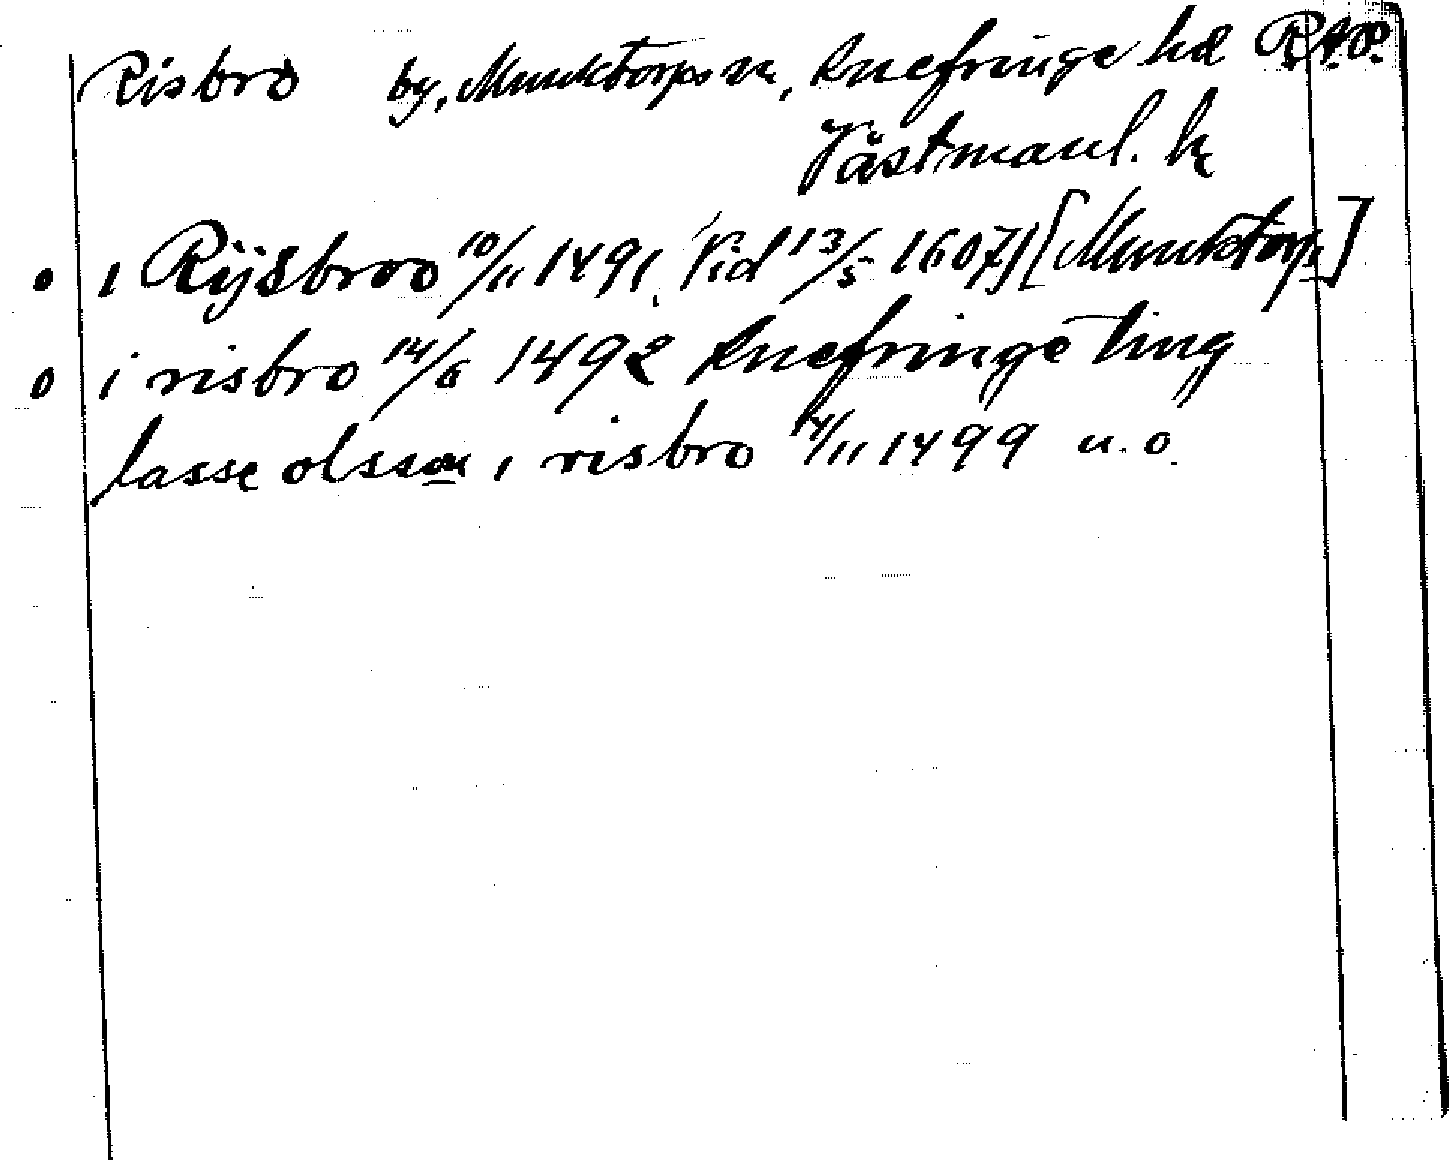 Risbro by, Munktorps sn, Snefringe hd RAP.
Västmanl. l.
• i Rijsbroo 10/11 1491 (Vid 13/5 1607) [Munktorp]
o i risbro 14/6 1492 Snefringe ting
lasse olsson i risbro 14/11 1499 u. o.